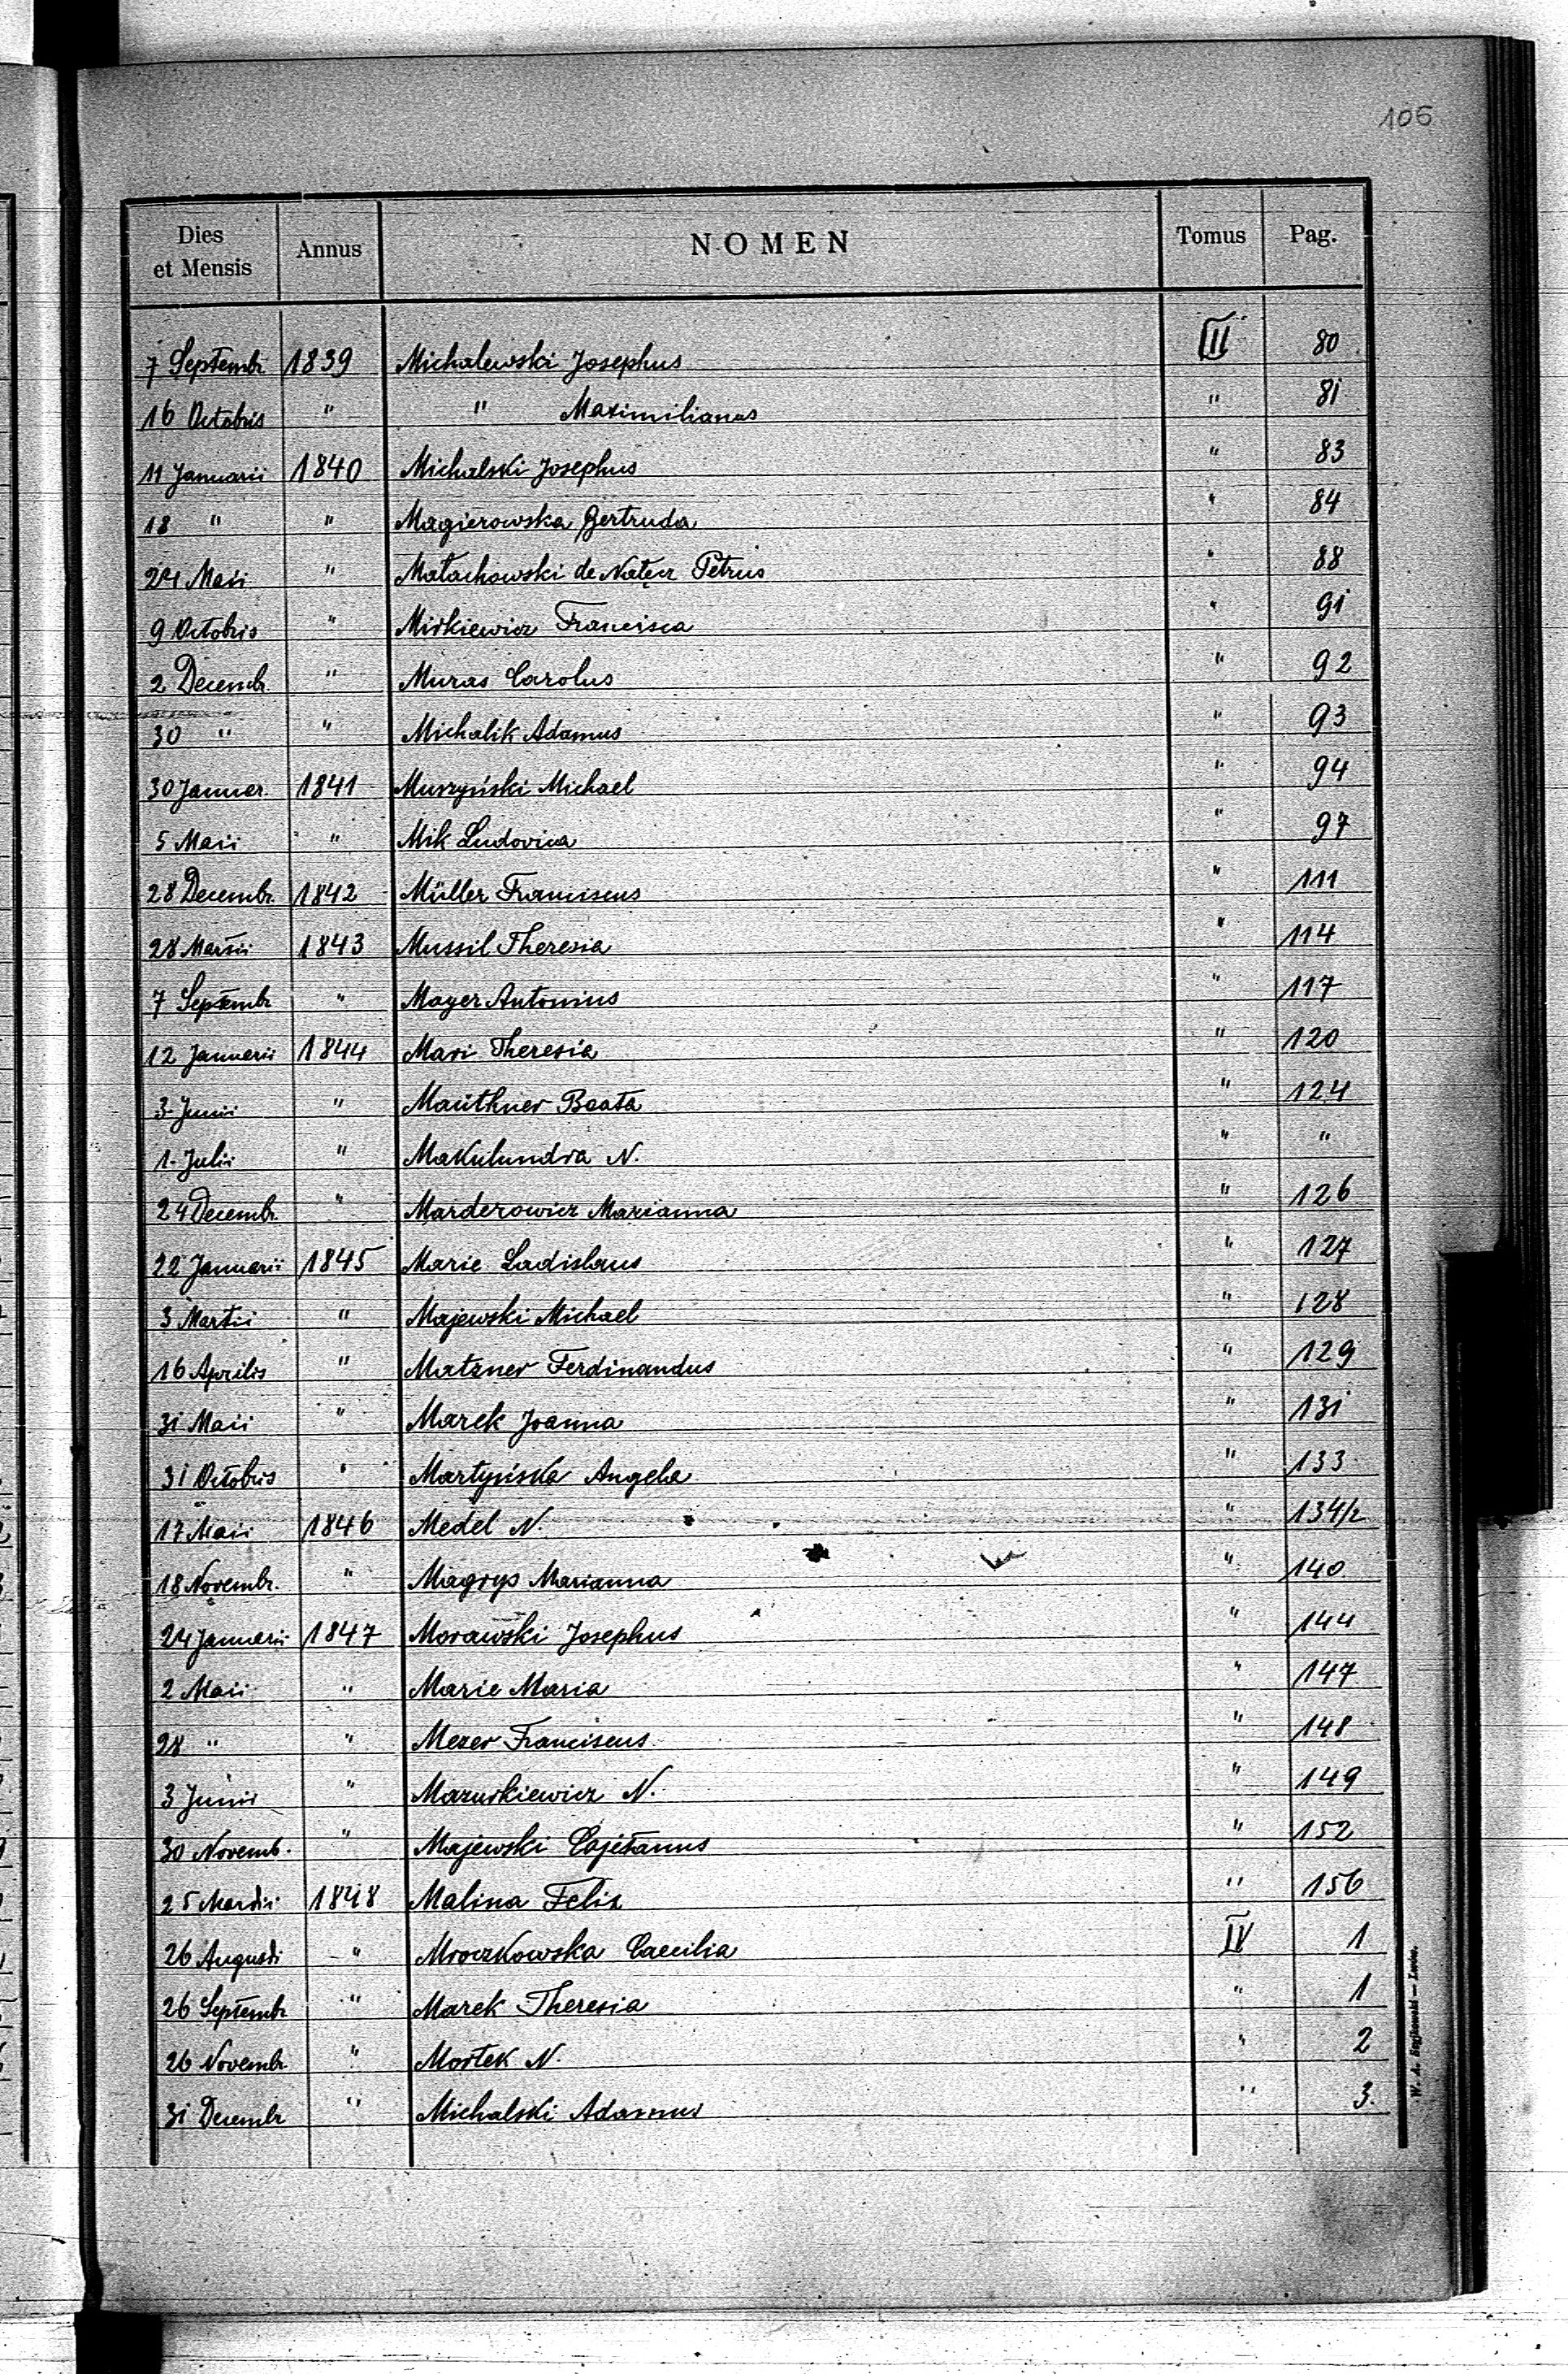 106
Dies et Mensis Annus NOMEN Tomus Pag.
7 Septembr. 1839 Michalewski Josephus III 80
16 Octobris " " Maximilianus " 81
11 Januarii 1840 Michalski Josephus " 83
18 " " Magierowska Gertruda " 84
24 Maii " Małachowski de Nałęcz Petrus " 88
9 Octobris " Mirkiewicz Francisca " 91
2 Decembr. " Muras Carolus " 92
30 " " Michalik Adamus " 93
30 Januar. 1841 Muszyński Michael " 94
5 Maii " Mik Ludovica " 97
28 Decembr. 1842 Müller Franciscus " 111
28 Martii 1843 Mussil Theresia " 114
7 Septembr " Mayer Antonius " 117
12 Januarii 1844 Mari Theresia " 120
3 Junii " Mauthner Beata " 124
1. Julii " Makulundra N. " "
24 Decembr. " Marderowicz Marianna " 126
22 Januarii 1845 Marie Ladislaus " 127
3 Martii " Majewski Michael " 128
16 Aprilis " Matzner Ferdinandus " 129
31 Maii " Marek Joanna " 131
31 Octobris " Martyńska Angela " 133
17 Maii 1846 Medel N. " 134/2
18 Novembr. " Magrys Marianna " 140
24 Januarii 1847 Morawski Josephus " 144
2 Maii " Marie Maria " 147
28 " " Mezer Franciscus " 148
3 Junii " Mazurkiewicz N. " 149
30 Novemb. " Majewski Cajetanus " 152
25 Martii 1848 Malina Felix " 156
26 Augusti " Mroczkowska Caecilia IV 1
26 Septembr " Marek Theresia " 1
26 Novembr. " Mortek N. " 2
31 Decembr " Michalski Adamus " 3.